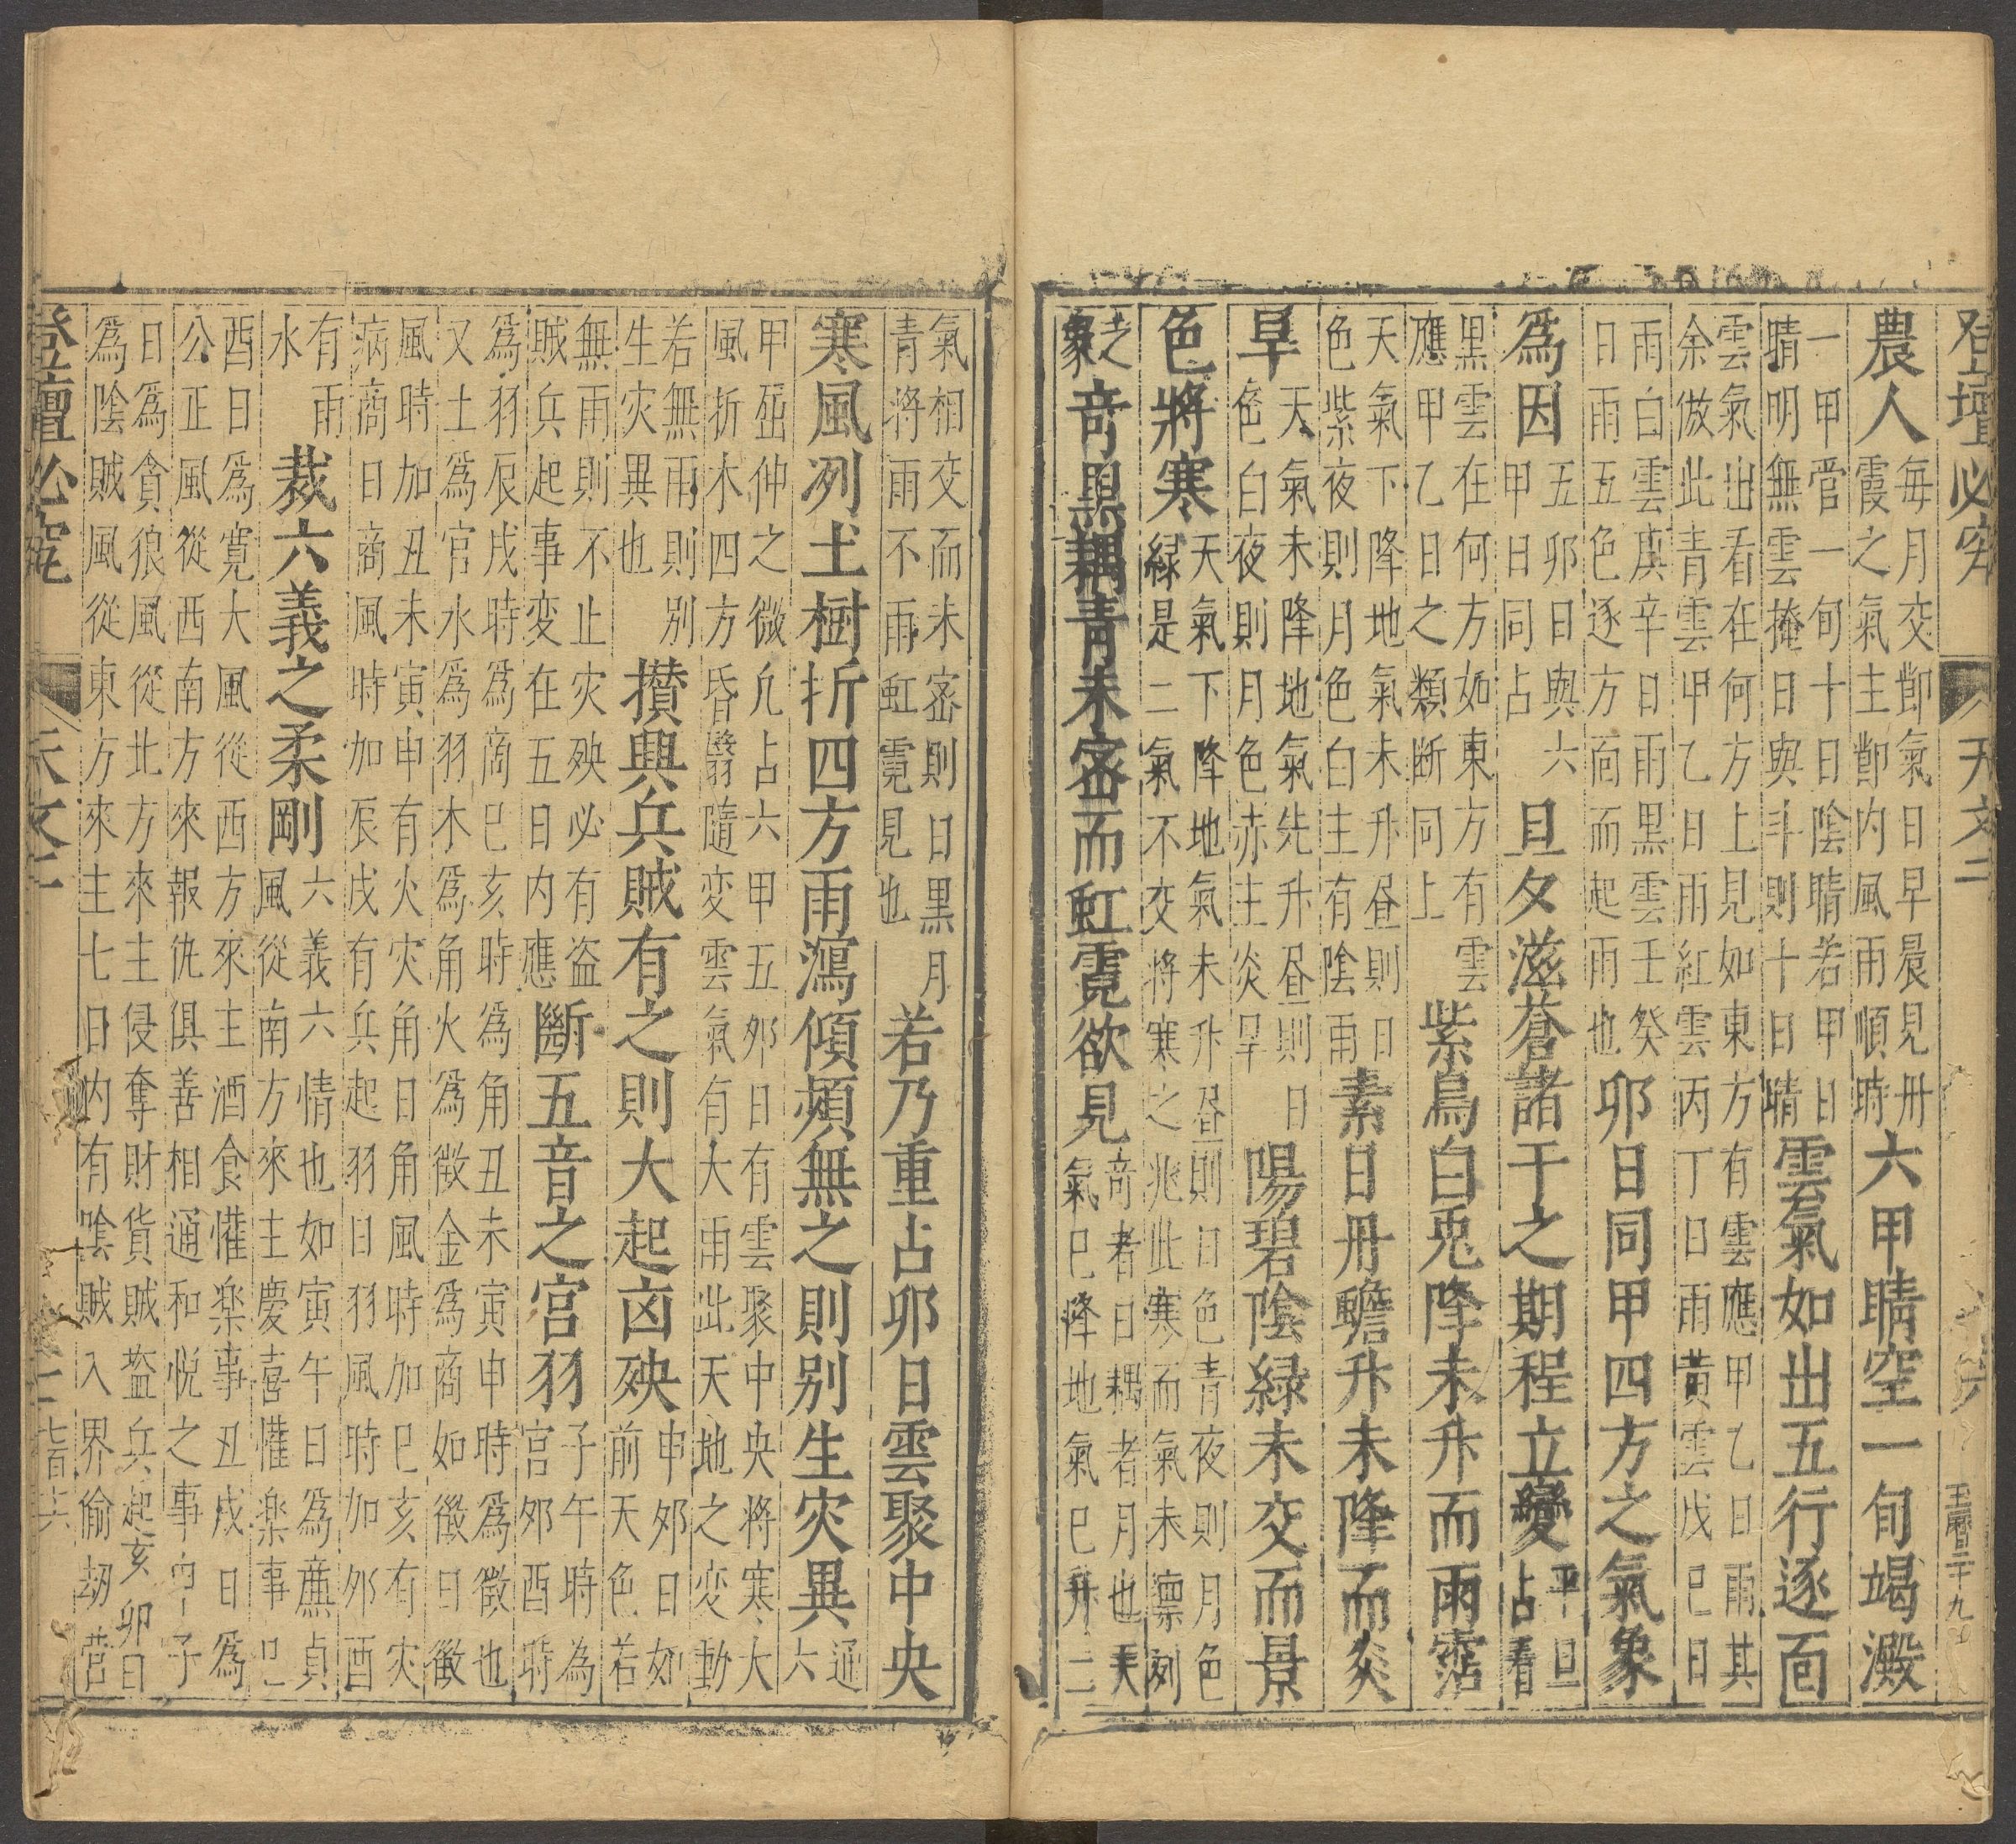 登壇必究 天文二
農人每月交節氣日早晨見丹霞之氣主節內風雨順時六甲晴空一旬竭澱
一甲管一旬十日陰晴若甲日晴明無雲掩日與斗則十日晴雲氣如出五行逐面
雲氣出看在何方上見如東方有雲應甲乙日雨其余倣此青雲甲乙日雨紅雲丙丁日雨黃雲戊巳日
雨白雲庚辛日雨黑雲壬癸日雨五色逐方面而起雨也卯日同甲四方之氣象
為因五卯日與六甲日同占旦夕滋蒼諸干之期程立變平旦占看
黑雲在何方如東方有雲應甲乙日之類斷同上紫烏白兎降未升而雨霑
天氣下降地氣未升昼則日色紫夜則月色白主有陰雨素日丹蟾升未降而炎
旱天氣未降地氣先升昼則日色白夜則月色赤主炎旱陽碧陰緑未交而景
色將寒天氣下降地氣未升昼則日色青夜則月色緑是二氣不交将寒之兆此寒而氣未凛冽
之象竒黑耦青未宻而虹霓欲見竒者日耦者月也天氣巳降地氣巳升二
氣相交而未宻則日黒月青将雨不雨虹霓見也若乃重占卯日雲聚中央
寒風冽土樹折四方雨瀉傾頻無之則别生灾異通六
甲盃仲之微凢占六甲五夘日有雲聚中央将寒大風折木四方昏翳隨変雲氣有大雨此天地之変動
若無雨則别生灾異也攅興兵賊有之則大起凶殃申夘日如前天色若
無雨則不止灾殃必有盗賊兵起事変在五日内應斷五音之宫羽子午時為宫夘酉時
爲羽辰戌時爲商巳亥時爲角丑未寅申時爲徵也又土爲宫水爲羽木爲角火爲徵金爲商如徵日徵
風時加丑未寅申有火灾角日角風時加巳亥有灾病商日商風時加辰戌有兵起羽日羽風時加夘酉
有雨水裁六義之柔剛六義六情也如寅午日爲廉貞風從南方來主慶喜懽楽事巳
酉日爲寛大風從西方來主酒食懽楽事丑戌日爲公正風從西南方來報仇俱善相通和悦之事申子
日爲貪狼風從北方來主侵奪財貨賊盗兵起亥卯日爲陰賊風從東方來主七日内有陰賊入界偷刼營
登壇必究 天文二